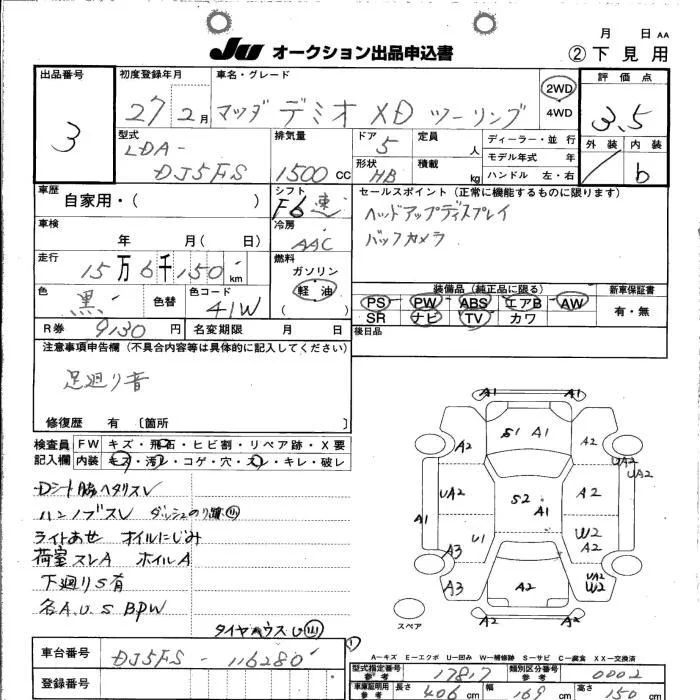 月 日 AA
JU オークション出品申込書 ②下見用
出品番号 3
初度登録年月 27 2月
車名・グレード マツダ デミオ XD ツーリング
2WD 4WD
評価点 3.5
外装 内装 b
型式 LDA- DJ5FS
排気量 1500 CC
ドア 5 形状 HB
定員 人 積載 kg
ディーラー・並行
モデル年式 年
ハンドル 左・右
車歴 自家用・( )
シフト F6速
セールスポイント(正常に機能するものに限ります)
ヘッドアップディスプレイ
バックカメラ
車検 年 月( 日)
冷房 AAC
走行 15万6千150 km
燃料 ガソリン 軽油 ( )
色 黒 色替 色コード 41W
装備品(純正品に限る) 新車保証書
PS PW ABS エアB AW 有・無
SR ナビ TV カワ
R券 9130 円 名変期限 月 日
後日品
注意事項申告欄(不具合内容等は具体的に記入してください)
足廻り音
修復歴 有 〔箇所 〕
検査員記入欄 FW キズ・飛石・ヒビ割・リペア跡・X要
内装 キズ・汚レ・コゲ・穴・スレ・キレ・破レ
Dシート脇ヘタリスレ
ハンノブスレ ダッシュのり跡
ライトあせ オイルにじみ
荷室スレA ホイルA
下廻りS有
各A.U.S BPW
タイヤハウスU
A1 A1
S1 A1
A2 A2
UA2 UA2
UA2 S2 A1 A2
A1
U1 W2 A2
A3
A3 UA2 W2
A2
A2 A2
スペア
A-キズ E-エクボ U-凹み W-補修跡 S-サビ C-腐食 XX-交換済
車台番号 DJ5FS - 116280
登録番号
型式指定番号 参考 17817 類別区分番号 参考 0002
車庫証明用 参考 長さ 406 cm 幅 169 cm 高さ 150 cm